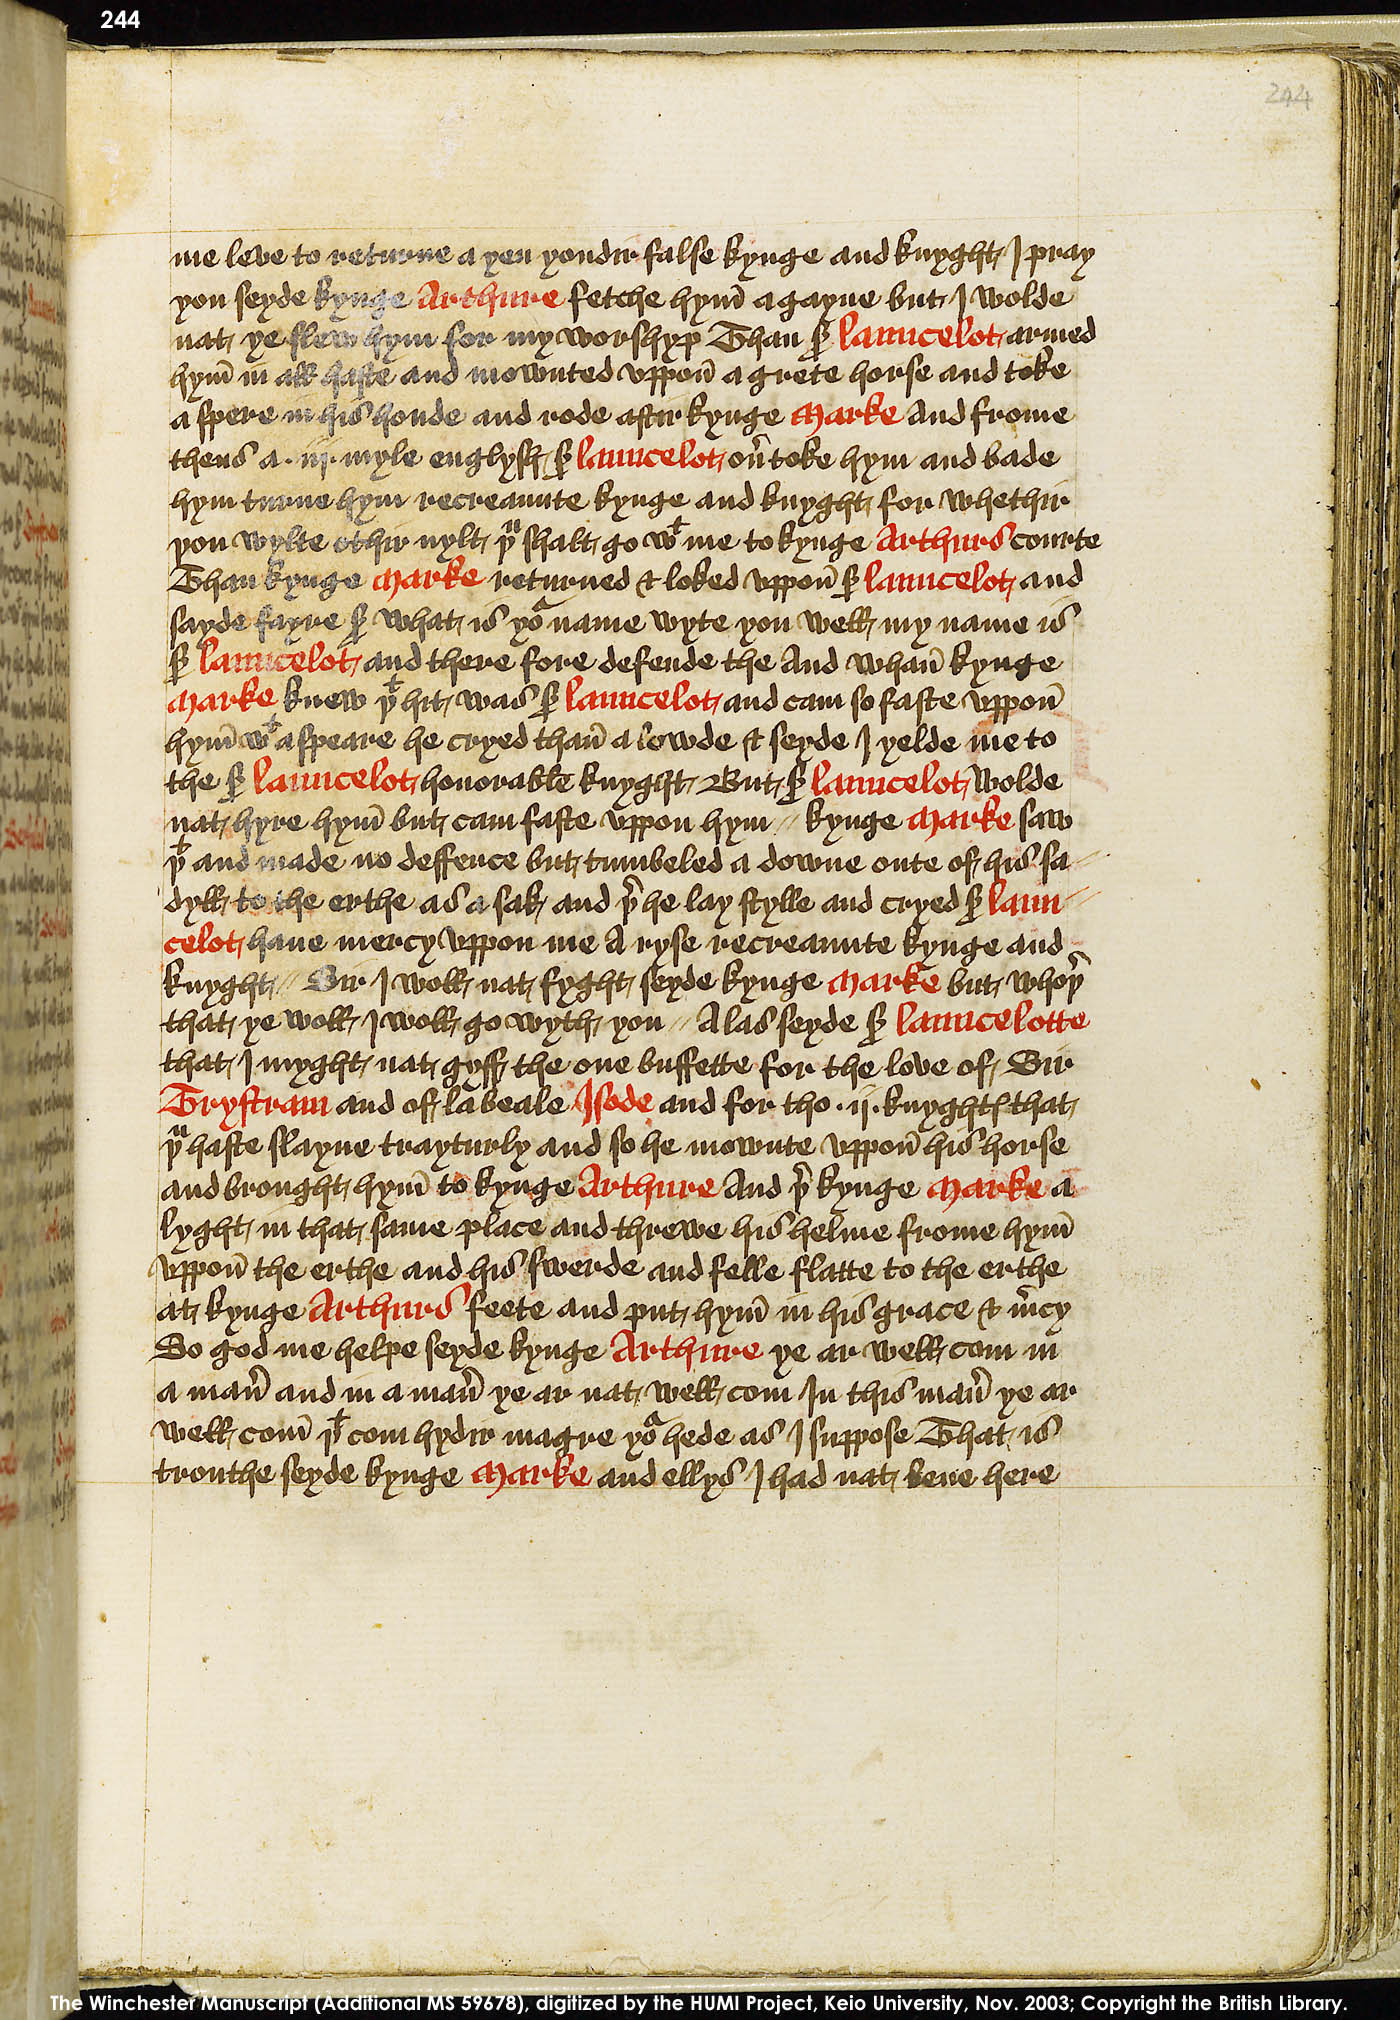 244
244
me leve to returne a yen yondir false kynge and knyght I pray
you seyde kynge Arthure fetche hym̄ agayne but I wolde
nat ye slew hym for my worshyp Than sͬ launcelot armed
hym̄ in all haste and mownted vppon̄ a grete horse and toke
a spere in his honde and rode aftir kynge Marke And frome
thens a .iij. myle englysh sͬ launcelot ov̄toke hym and bade
hym turne hym recreaunte kynge and knyght for whethir
you wylte othir nylt yͧ shalt go wᵗ me to kynge Arthurs courte
Than kynge Marke returned & loked vppon̄ sͬ launcelot and
sayde fayre sͬ what is yoͬ name wyte you well my name is
sͬ launcelot and there fore defende the And whan̄ kynge
Marke knew yᵗ hit was sͬ launcelot and cam so faste vppon̄
hym̄ wᵗ a speare he cryed than̄ a lowde & seyde I yelde me to
the sͬ launcelot honorable knyght But sͬ launcelot wolde
nat hyre hym̄ but cam faste vppon hym // kynge Marke saw
yᵗ and made no deffence but tumbeled a downe oute of his sa //
dyll to the erthe as a sak and yͤr he lay stylle and cryed sͬ laun //
celot haue mercy vppon me A ryse recreaunte kynge and
knyght // Sir I woll nat fyght seyde kynge Marke but whoyͬ
that ye woll I woll go wyth you // Alas seyde sͬ launcelotte
that I myght nat gyff the one buffette for the love of Sir
Trystram and of la beale Isode and for tho .ij. knyghtes that
yͧ haste slayne trayturly and so he mownte vppon̄ his horse
and brought hym̄ to kynge Arthure And yͤr kynge Marke a
lyght in that same place and threwe his helme frome hym̄
vppon̄ the erthe and his swerde and felle flatte to the erthe
at kynge Arthurs feete and put hym̄ in his grace & m̄cy
So god me helpe seyde kynge Arthure ye ar well com in
a man̄ and in a man̄ ye ar nat well com In this man̄ ye ar
well com̄ yᵗ com hydir magre yoͬ hede as I suppose That is
trouthe seyde kynge Marke and ellys I had nat bene here
The Winchester Manuscript (Additional MS 59678), digitized by the HUMI Project, Keio University, Nov. 2003; Copyright the British Library.